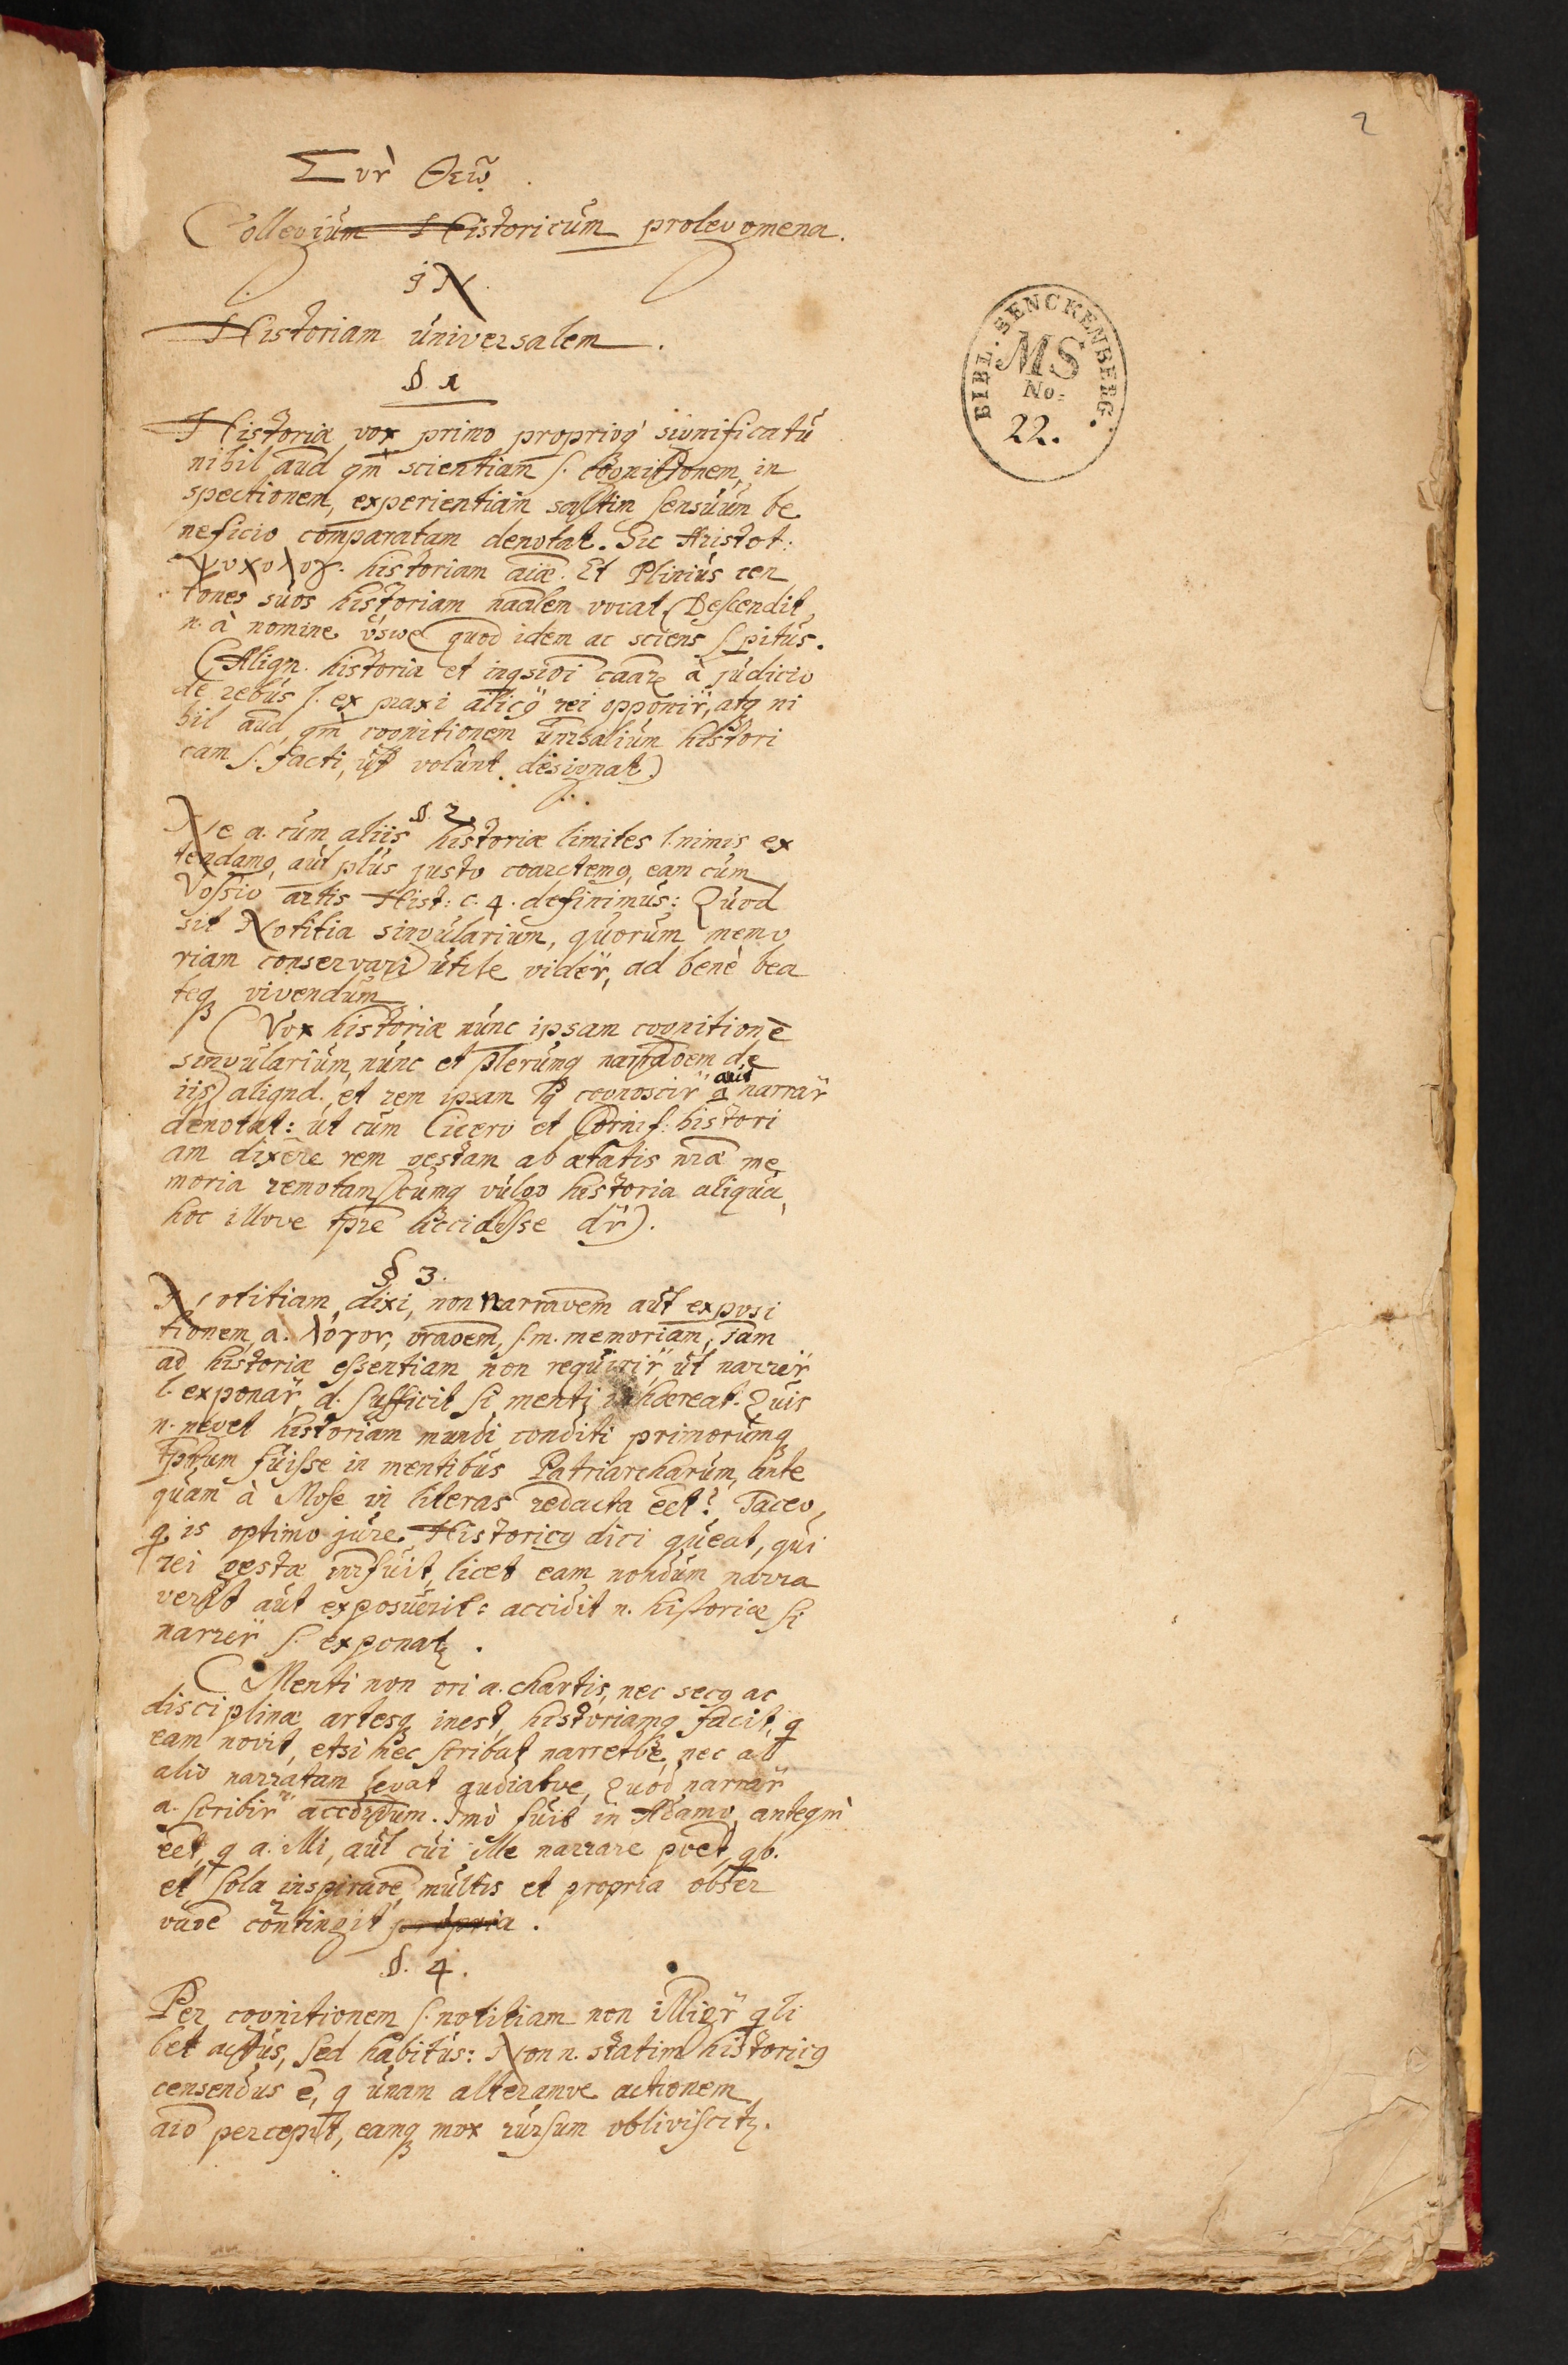 2
Σὺν Θεῷ
Collegium Historicum prolegomena.
in
Historiam universalem.
§ 1
Historiæ vox primo proprioq́ significatu
nihil aud qm̀ scientiam s. cognitionem, in
spectionem, experientiam saltim sensuum be
neficio comparatam denotat. Sic Aristot:
ψυχολογ. historiam aiæ. Et Plinius cen
tones suos historiam naalem vocat (Descendit
n. à nomine quod idem ac sciens s. pitus.
(Aliqn. historia et à judicio
de rebus s. ex praxi alicq rei opponir̈, atq ni
hil aud, qm̀ cognitionem histori
cam s. facti, ut volunt designat)
§. 2.
Ne a. cum aliis historiæ limites l. nimis ex
tendamq, aut plus justo coarctemq, eam cum
Vossio artis Hist: c. 4. definimus: Quod
sit Notitia singularium, quorum memo
riam conservari utile vider̈, ad benè bea
teq vivendum
(Vox historiæ nunc ipsam cognitionē
singularium, nunc et plerumq narraoem de
iis) aliqnd. et rem ipsam cognoscir̈ aut narrar̈
denotat: ut cum Cicero et Cornif: histori
am dixēre rem gestam ab ætatis nræ me
moria remotam) cumq vulgo historia aliqua
hoc illove tpre accidisse dr̈).
§ 3.
Notitiam dixi, non narraoem aut exposi
tionem, a. λόγον, oraoem, s. m. memoriam, jam
ad historiæ essentiam non requirir̈, ut narrer̈
l. exponar̈, d. sufficit si menti inhæreat. Quis
n. neget historiam mundi conditi primorumq
tptum fuisse in mentibus Patriarcharum, ante
quam à Mose in literas redacta eet? Taceo,
q is optimo jure Historicq dici queat, qui
rei gestæ inrfuit, licet eam nondum narra
verit aut exposuerit: accidit n. historiæ si
narrer̈ s. exponatr.
(Menti non ori a. chartis, nec secq ac
disciplinæ artesq inest, historiamq facit, q
eam novit, etsi nec scribat narretve, nec ab
alio narratam legat audiatve, Quod narrar̈
a. scribir̈ . Imò fuit in Adamo, anteqm̀
eet, q a. illi, aut cui ille narrare poet, qb.
et sola inspiraoe multis et propria obser
vaoe contingit propria.
§. 4.
Per cognitionem s. notitiam non illigr̈ qli
bet actus, sed habitus: Non n. statim historicq
censendus ē, q unam alteramve actionem
aio percepit, eamq mox rursum obliviscitr.
BIBL. SENCKENBERG.
MS
No:
22.